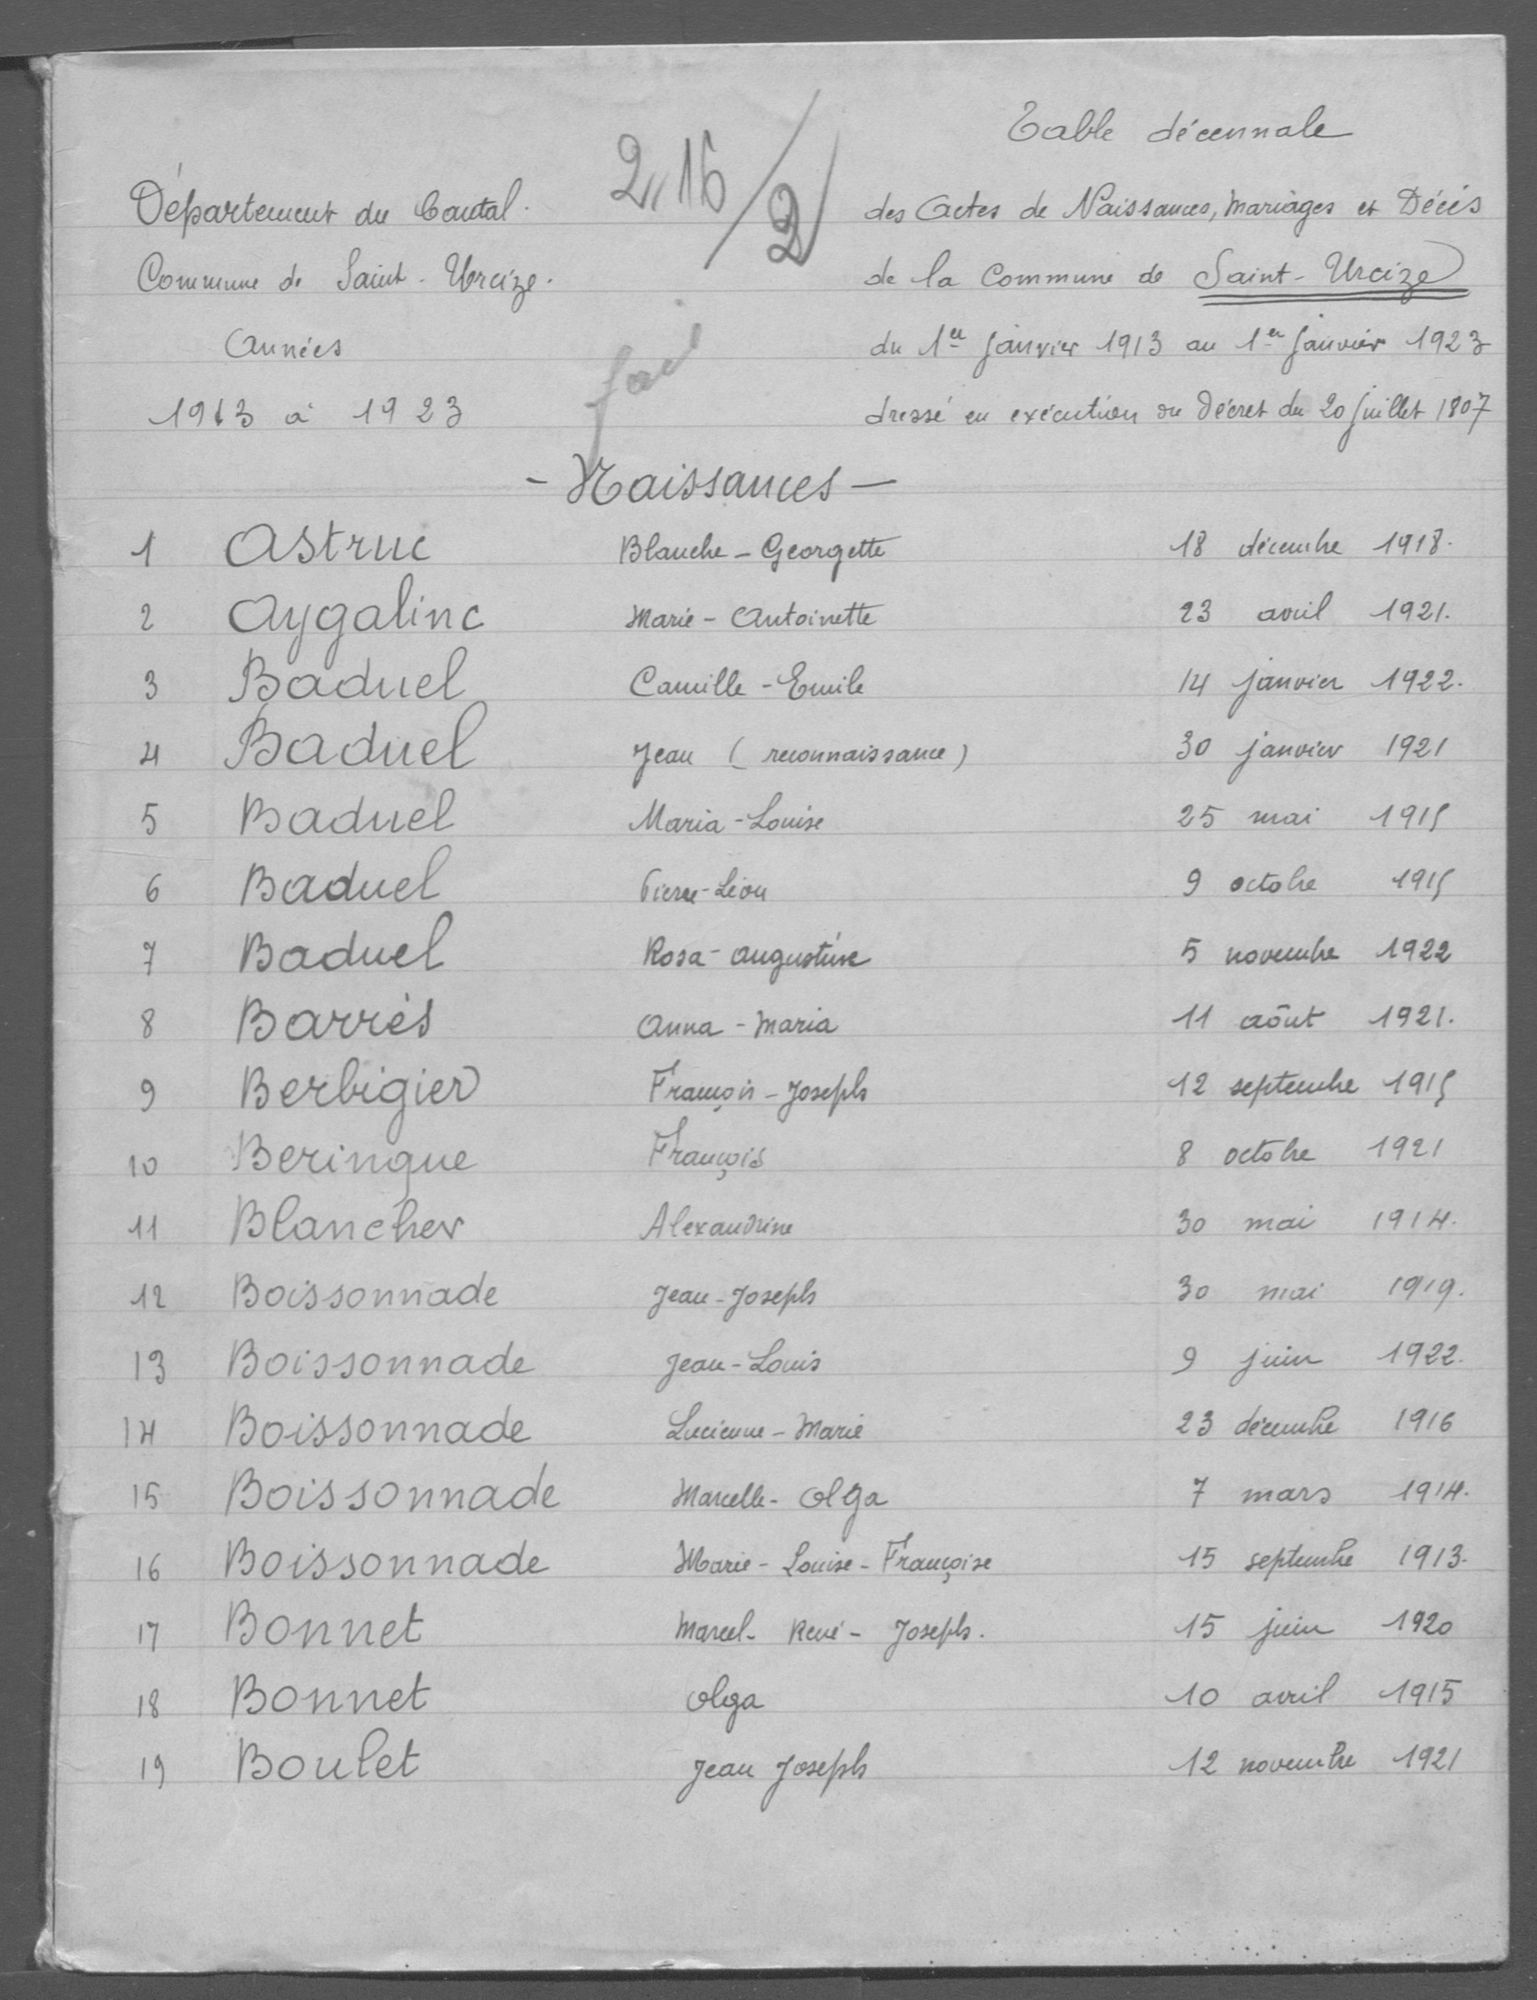 Table décennale
Département du Cantal.
Commune de Saint-Urcize.
Années
1913 à 1923
2,16/2
fait
des Actes de Naissances, Mariages et Décès
de la Commune de Saint-Urcize
du 1er janvier 1913 au 1er janvier 1923
dressé en exécution du Décret du 20 juillet 1807
- Naissances -
1 Astruc Blanche-Georgette 18 décembre 1918.
2 Aygalinc Marie-Antoinette 23 avril 1921.
3 Baduel Camille-Emile 14 janvier 1922.
4 Baduel Jean (reconnaissance) 30 janvier 1921
5 Baduel Maria-Louise 25 mai 1915
6 Baduel Pierre-Léon 9 octobre 1915
7 Baduel Rosa-Augustine 5 novembre 1922
8 Barrès Anna-Maria 11 aôut 1921.
9 Berbigier François-Joseph 12 septembre 1915
10 Beringue François 8 octobre 1921
11 Blancher Alexandrine 30 mai 1914.
12 Boissonnade Jean-Joseph 30 mai 1919.
13 Boissonnade Jean-Louis 9 juin 1922.
14 Boissonnade Lucienne-Marie 23 décembre 1916
15 Boissonnade Marcelle-Olga 7 mars 1914.
16 Boissonnade Marie-Louise-Françoise 15 septembre 1913.
17 Bonnet Marcel-René-Joseph. 15 juin 1920
18 Bonnet Olga 10 avril 1915
19 Boulet Jean Joseph 12 novembre 1921